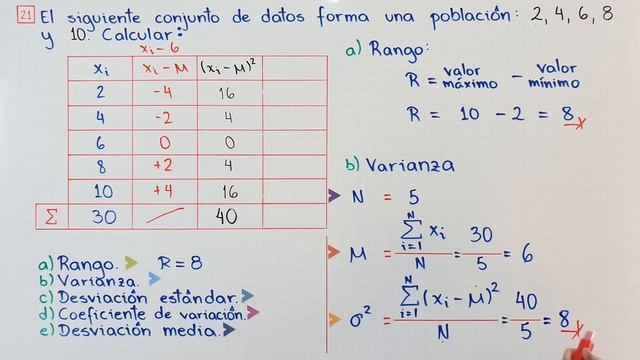 21 El siguiente conjunto de datos forma una población: 2, 4, 6, 8
y 10. Calcular:
xi - 6
xi | xi - M | (xi - M)²
2 | -4 | 16
4 | -2 | 4
6 | 0 | 0
8 | +2 | 4
10 | +4 | 16
Σ | 30 | | 40
a) Rango. R = 8
b) Varianza.
c) Desviación estándar.
d) Coeficiente de variación.
e) Desviación media.
a) Rango:
R = valor máximo - valor mínimo
R = 10 - 2 = 8
b) Varianza
N = 5
M = Σ(i=1, N) xi / N = 30 / 5 = 6
σ² = Σ(i=1, N) (xi - M)² / N = 40 / 5 = 8